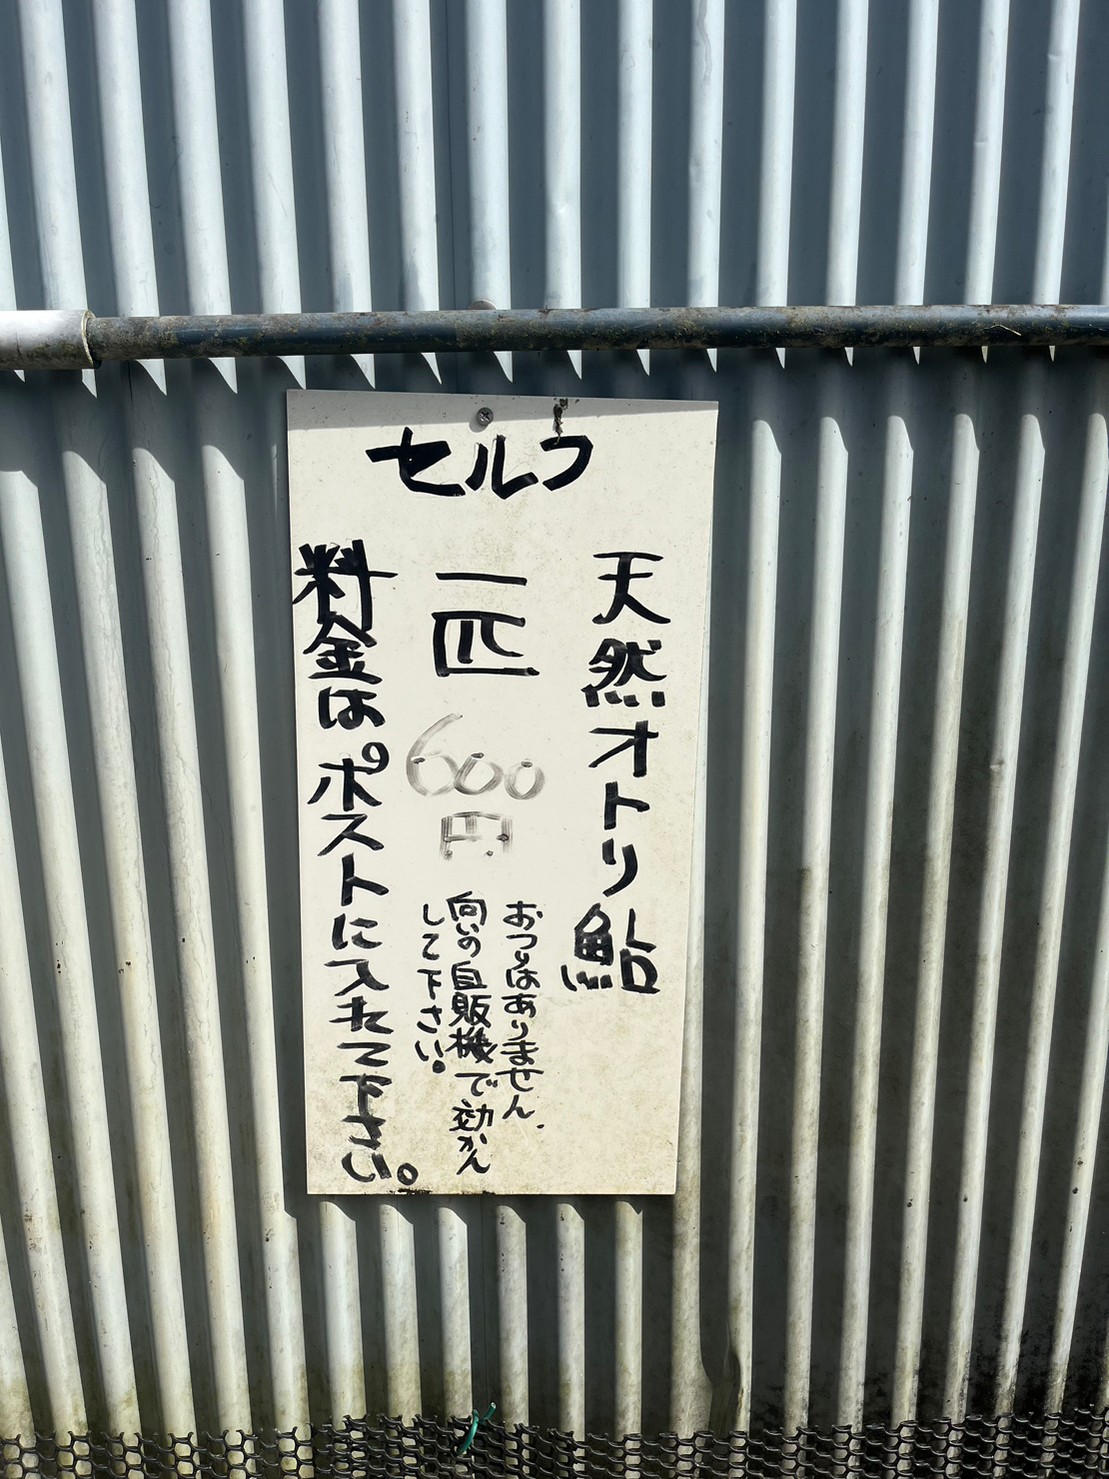 セルフ
天然オトリ鮎
一匹
600
円
おつりはありません、
向いの自販機で効かん
して下さい。
料金はポストに入れて下さい。